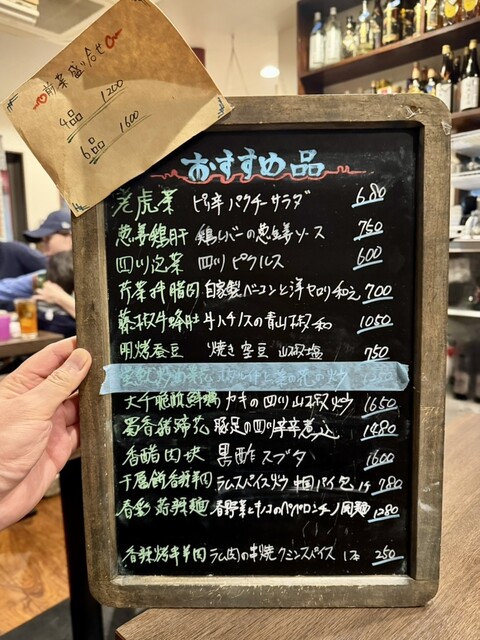 前菜盛り合せ
4品 1200
6品 1600
おすすめ品
老虎菜 ピリ辛パクチーサラダ 680
葱姜鶏肝 鶏レバーの葱姜ソース 750
四川泡菜 四川ピクルス 600
芹菜拌腊肉 自家製ベーコンと洋セロリ和え 700
藤椒牛蜂肚 牛ハチノスの青山椒和 1050
明烤蚕豆 焼き空豆 山椒塩 750
カキの四川山椒炒 1650
蜀香猪蹄花 豚足の四川辛煮込 1480
香醋肉块 黒酢スブタ 1600
ラムスパイス炒 中国パイ包 1ヶ 780
春野菜とキノコのペペロンチーノ風麺 1280
香辣烤羊肉 ラム肉の串焼クミンスパイス 1本 250